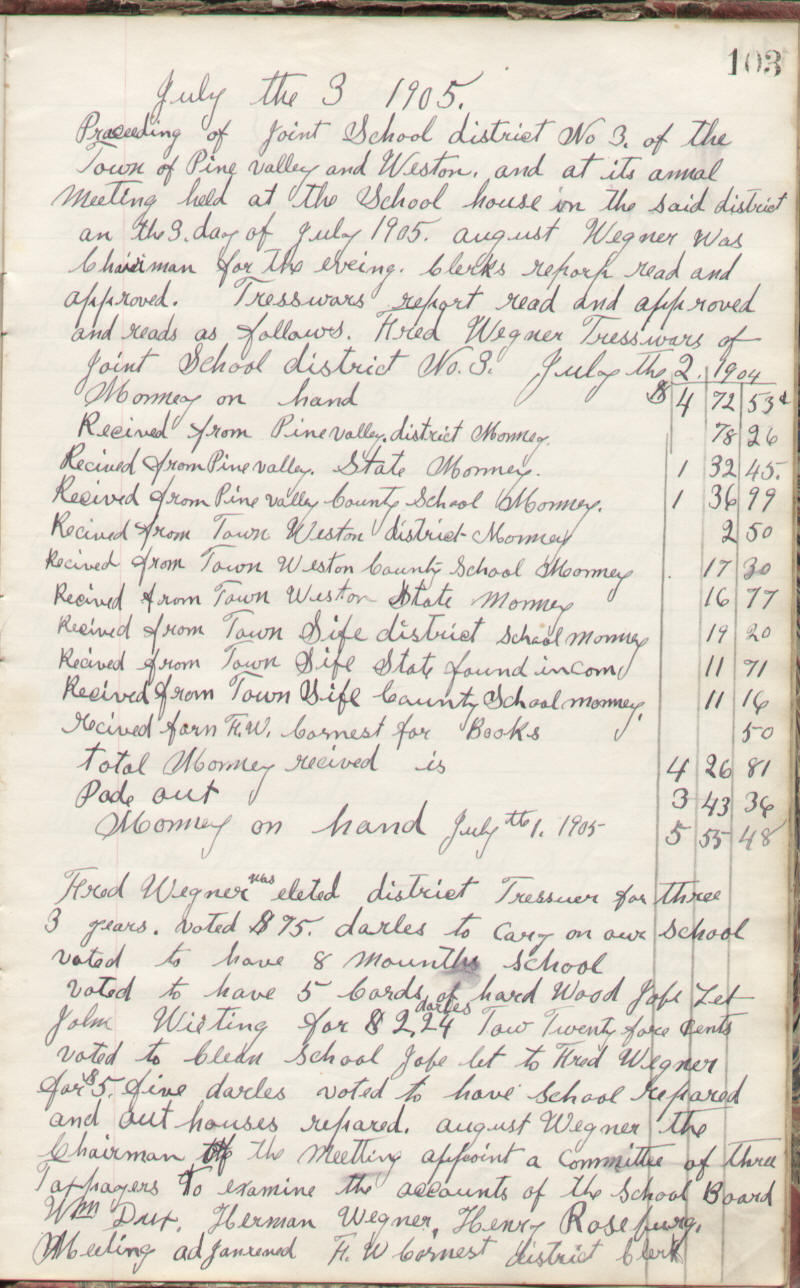 103
July the 3 1905.
Proceeding of Joint School district No 3. of the
Town of Pine valley and Weston. and at its annual
Meeting held at the School house in the said district
an the 3. day of July 1905. august Wegner was
Chairman for the eveing. Clerks reporp read and
approved. Tresswars report read and approved
and reads as follows. Fred Wegner Tresswars of
Joint School district No. 3. July the 2. 1904
Monney on hand $ 4 72 53¢
Recived from Pine valley. district Monney. 78 26
Recived from Pine valley. State Monney. 1 32 45.
Recived from Pine valley County School Monney. 1 36 99
Recived from Town Weston district Monney 2 50
Recived from Town Weston County School Monney 17 30
Recived from Town Weston State Monney 16 77
Recived from Town Sife district School monney 19 20
Recived from Town Sife State found incom 11 71
Recived from Town Sife County School monney. 11 16
recived forn F.W. Cornest for Books 50
total Monney recived is 4 26 81
Pade out 3 43 36
Monney on hand July th 1. 1905 5 55 48
Fred Wegner was eleted district Tressuer for three
3 years. voted $75. darles to Cary on our School
voted to have 8 Mounths School
voted to have 5 Cords of hard Wood Jobe Let
John Wieting for $ 2,24 darles Tow Twenty fore Cents
voted to Clean School Jobe let to Fred Wegner
for $5. five darles voted to have School repared
and out houses repared. august Wegner the
Chairman of the Meetting appoint a Committee of three
Taxpayers To examine the accounts of the School Board
Wm Drux. Herman Wegner, Henry Roseburg.
Meeting adjanrened F. W Cornest district Clerk